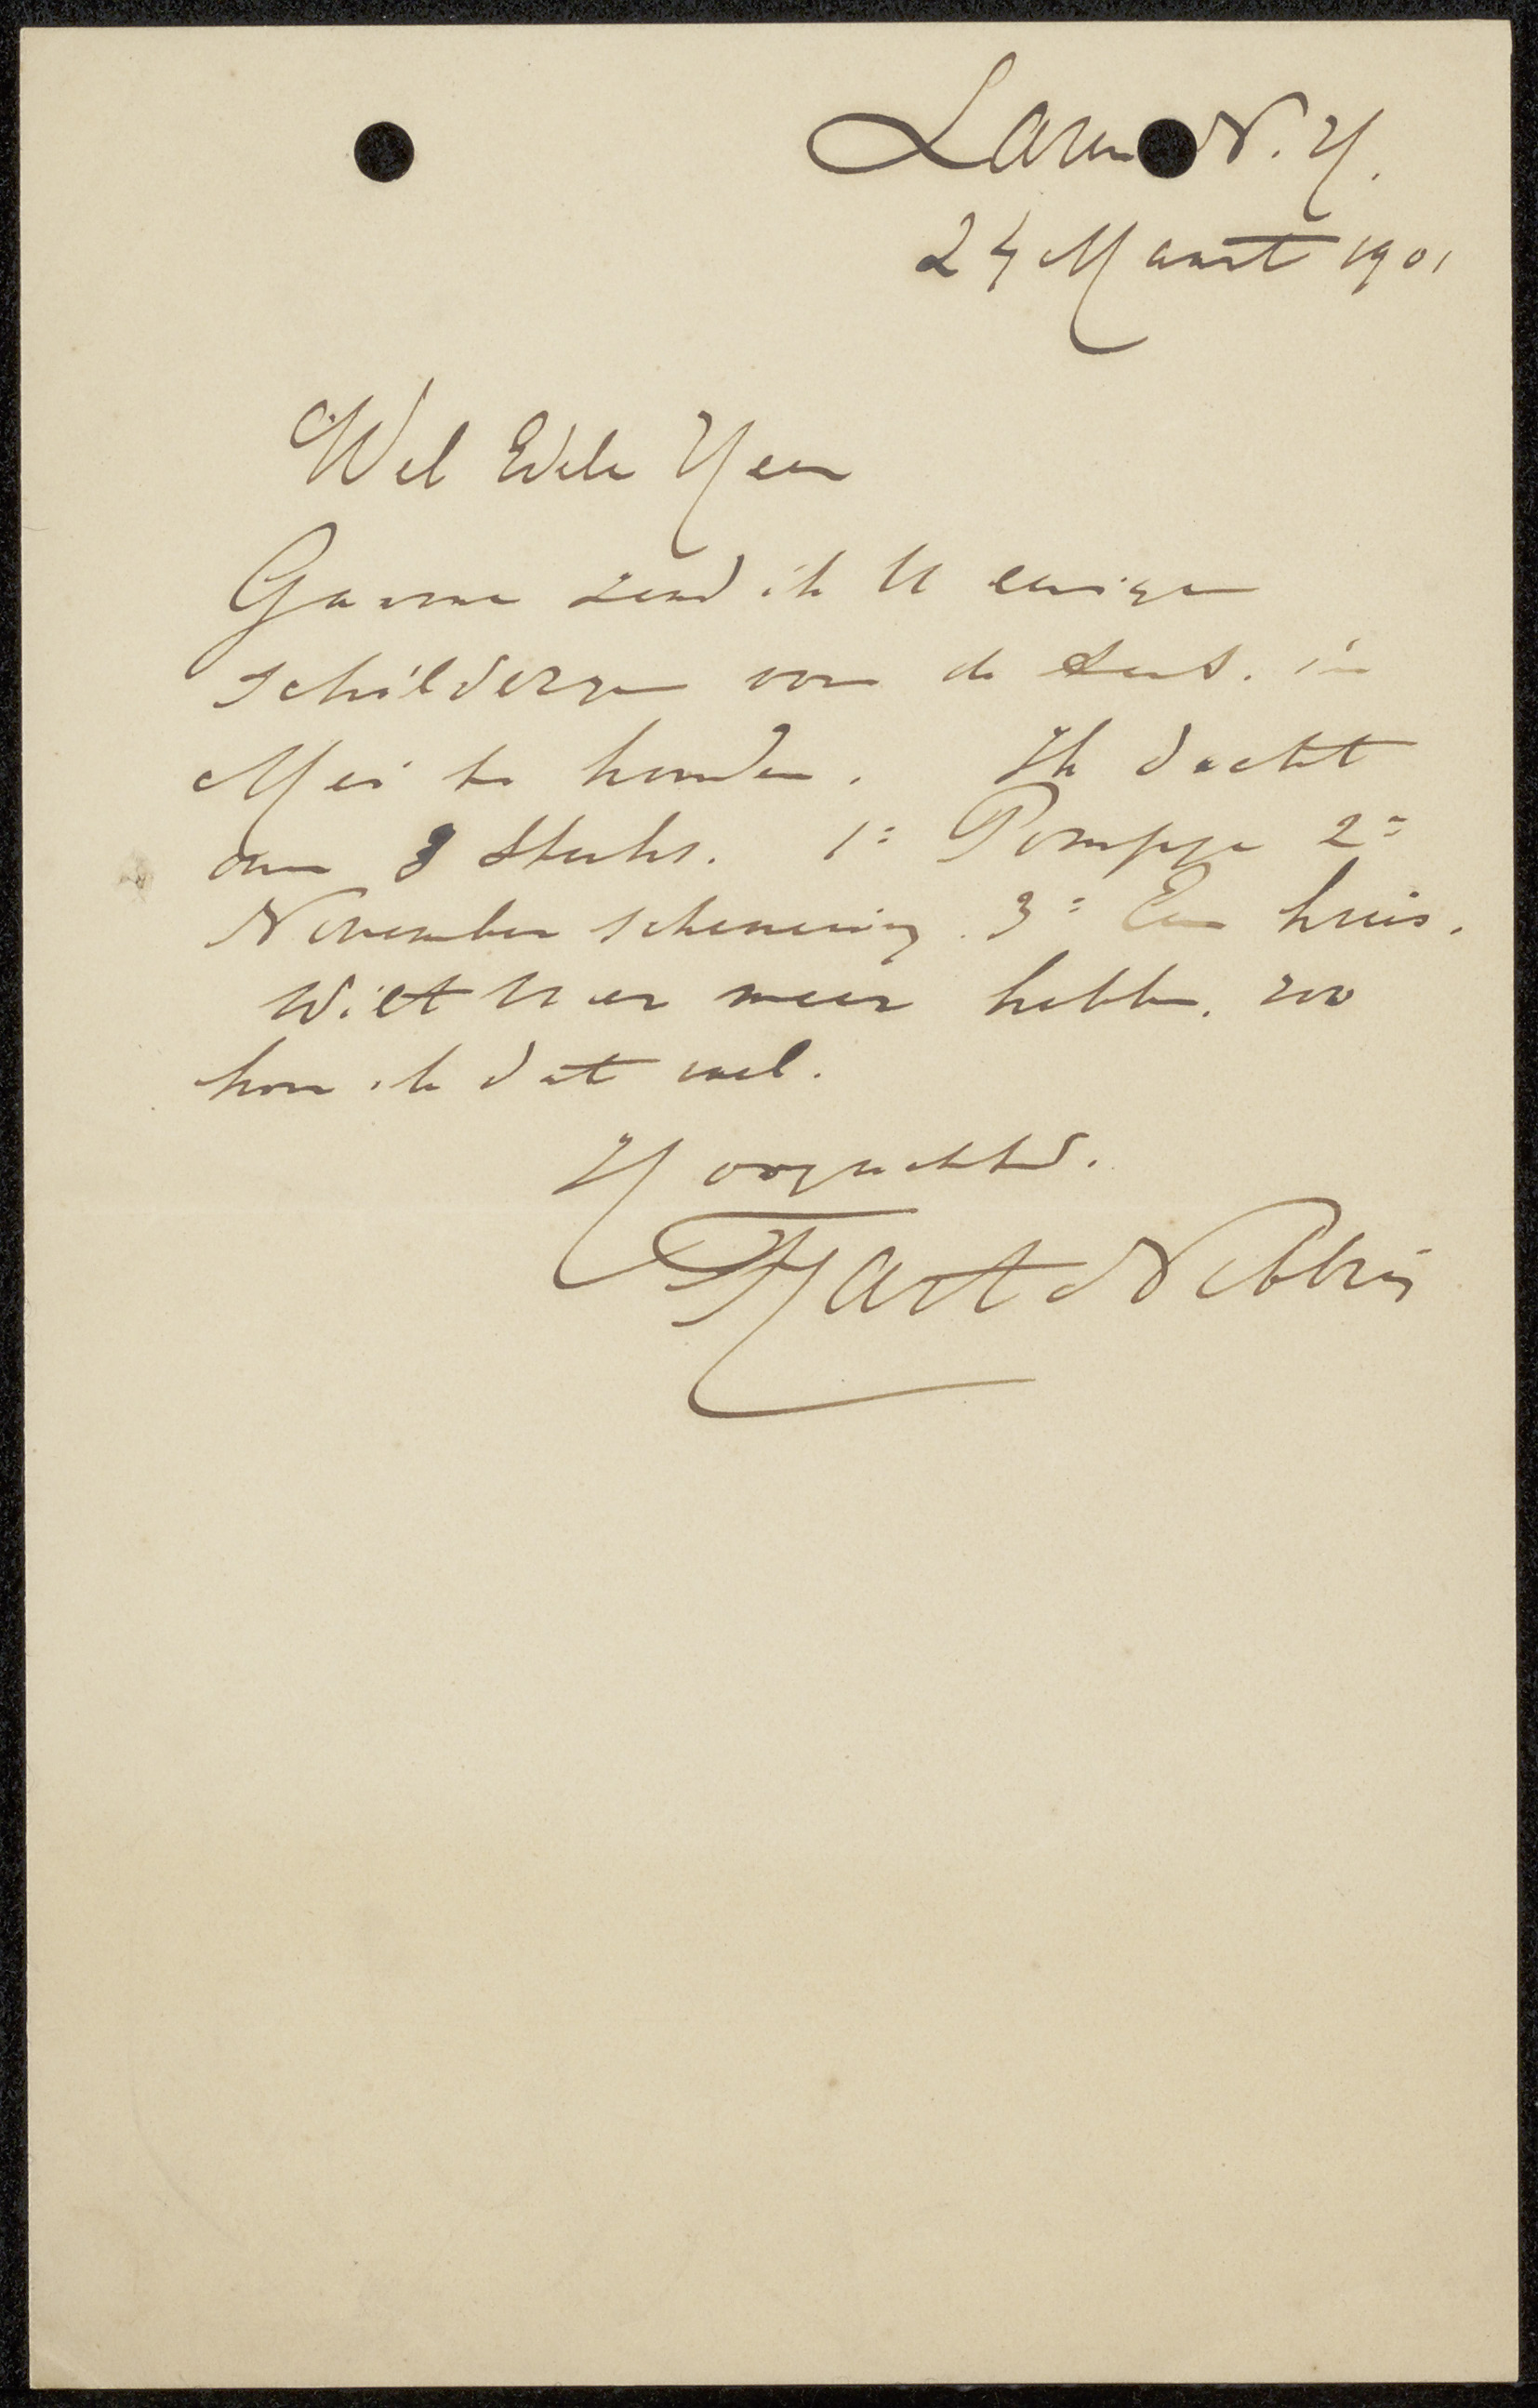 Laren N.H.
24 Maart 1901
Wel Edele Heer
Gaarne zend ik U eenige
schilderyen voor de tent. in
Mei te houden. Ik dacht
om 3 stuks. 1= Pompje 2=
November schemering. 3= Een huis.
Wilt U er meer hebben, zoo
kan ik dat wel.
Hoogachtend.
Hart Nibbrig